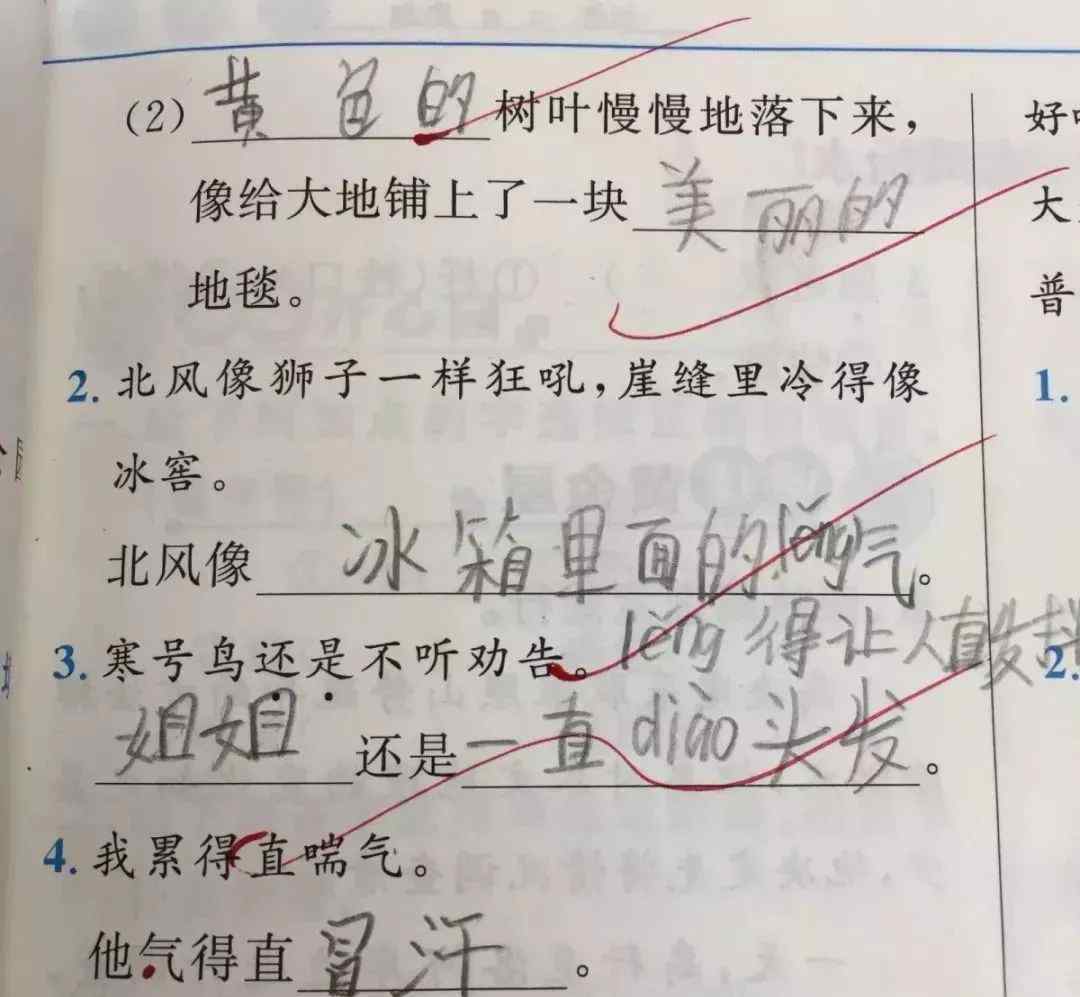 (2)黄色的树叶慢慢地落下来，
像给大地铺上了一块美丽的
地毯。
2. 北风像狮子一样狂吼，崖缝里冷得像
冰窖。
北风像冰箱里面的lěng气。
lěng得让人直发抖
3. 寒号鸟还是不听劝告。
姐姐还是一直diào头发。
4. 我累得直喘气。
他气得直冒汗。
好
大
普
1.
2.